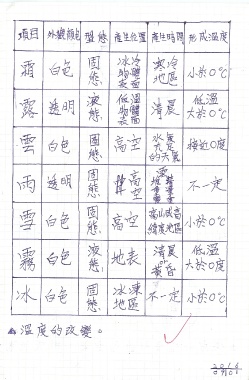 項目 外觀顏色 型態 產生位置 產生時間 形成溫度
霜 白色 固態 冰冷物體表面 寒冷地區 小於0°C
露 透明 液態 低溫物體表面 清晨 低溫大於0°C
雲 白色 固態 高空 水氣的天氣 接近0度
雨 透明 固態 高空 不一定
雪 白色 固態 高空 高山或高緯度地區 小於0°C
霧 白色 液態 地表 清晨 黃昏 低溫大於0度
冰 白色 固態 冰凍地區 不一定 小於0°C
溫度的改變。